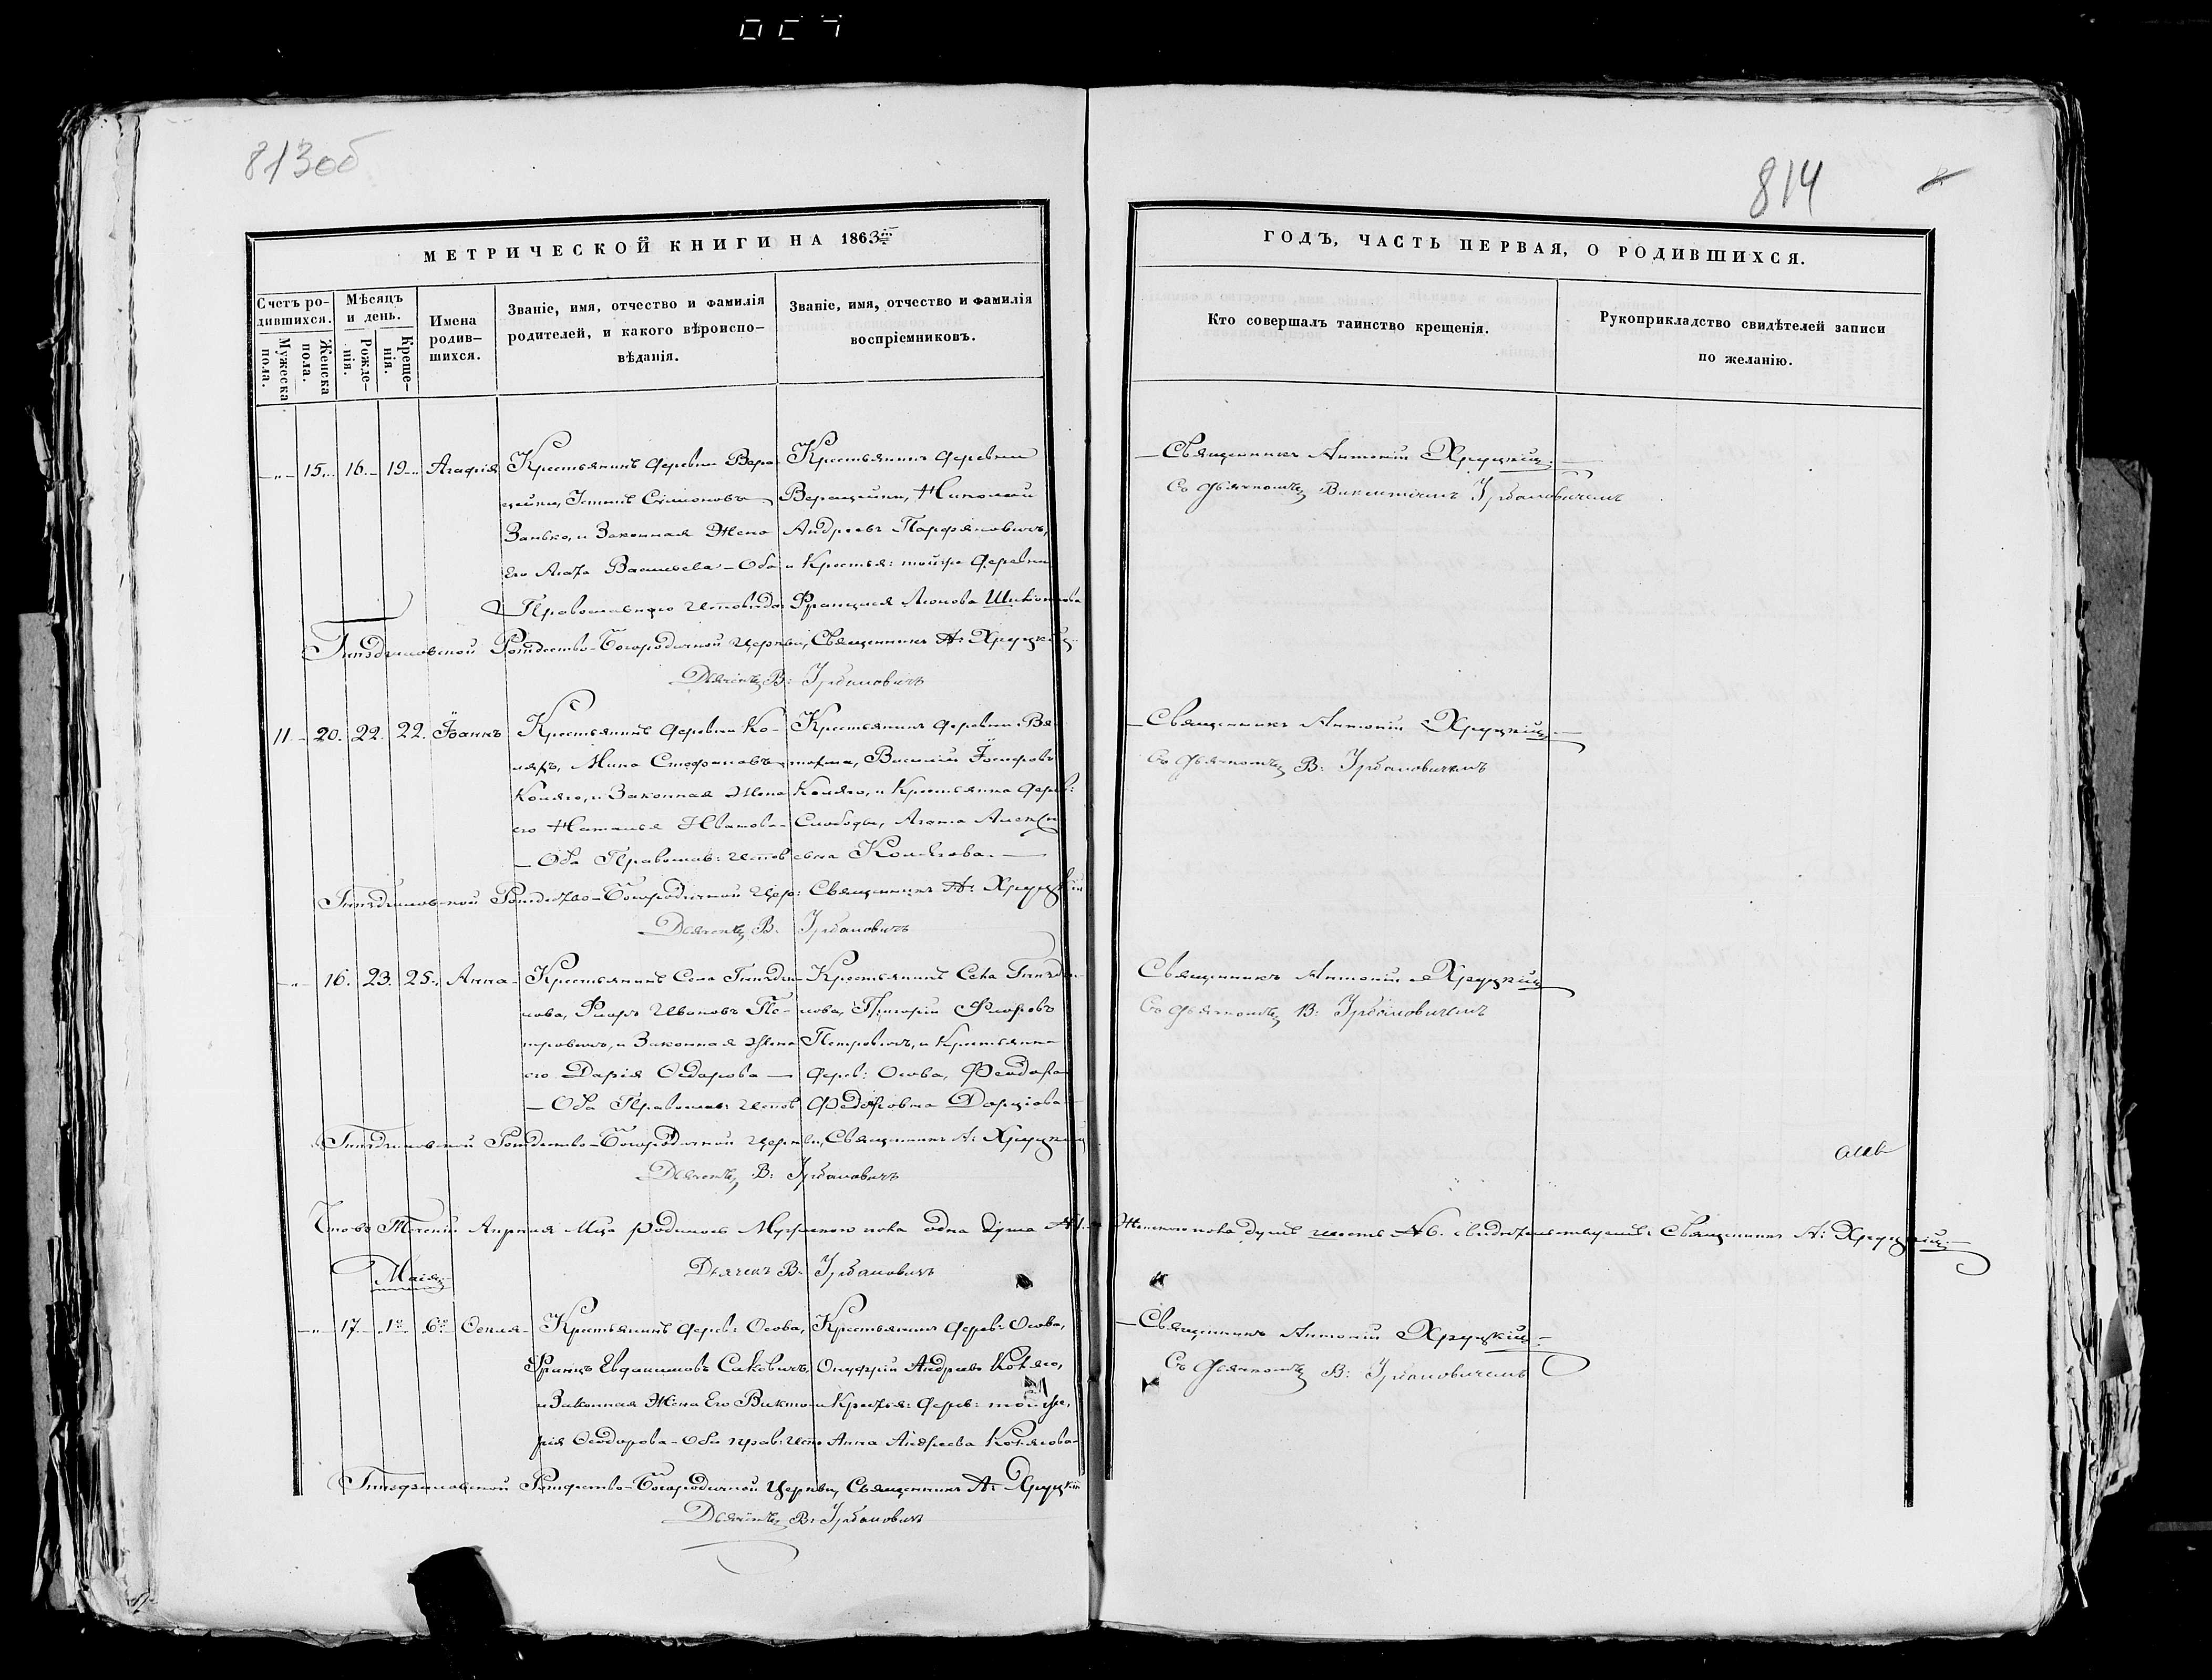 813об
814
МЕТРИЧЕСКОЙ КНИГИ НА 1863
ГОДЪ, ЧАСТЬ ПЕРВАЯ, О РОДИВШИХСЯ.
Счетъ ро-
дившихся.
Мужеска
пола.
Женска
пола.
Мѣсяцъ
и день.
Рожде-
нія.
Креще-
нія.
Имена
родив-
шихся.
Званіе, имя, отчество и фамилія
родителей, и какого вѣроиспо-
вѣданія.
Званіе, имя, отчество и фамилія
воспріемниковъ.
Кто совершалъ таинство крещенія.
Рукоприкладство свидѣтелей записи
по желанію.
15. 16. 19. Агафія
Крестьянинъ деревни Вера-
Симоновъ
Занько, и Законная Жена
Его Агата Васильева - Оба
Православнаго
Крестьянинъ деревни
Верацейки, Николай
Андреевъ Парфяновичъ,
и Крестья: тойже деревни
Францися Леонова
Священникъ Антоній Хруцкій
Со Дьячкомъ Викентіемъ Урбановичемъ
Рождество-Богородичной Церкви, Священникъ А: Хруцкій
Дьячекъ В: Урбановичъ
11 20. 22. 22. Іоаннъ
Крестьянинъ деревни Ко-
Мина Стефановъ
Коляго, и Законная Жена
его Наталья
Оба Православ: испов
Крестьянинъ деревни Вя-
Василій
Коляго, и Крестьянка дерев:
Слободы, Агата Алексе
евна
Священникъ Антоній Хруцкій
Со Дьячкомъ В: Урбановичемъ
Рождество-Богородичной Цер: Священникъ А: Хруцкій
Дьячекъ В. Урбановичъ
16. 23. 25. Анна
Крестьянинъ Села Гнѣзди-
лова, Флоръ Ивановъ Пе-
тровичъ, и Законная Жена
его Дарія Ѳедорова
Оба Православ: испов
Крестьянинъ Села Гнѣзди-
лова, Григорій Флоровъ
Петровичъ, и Крестьянка
дерев: Осова, Феодора
Федоровна
Священникъ Антоній Хруцкій
Со Дьячкомъ В: Урбановичемъ
Гнѣздиловской Рождество-Богородичной Церкви, Священникъ А: Хруцкій
Дьячекъ В: Урбановичъ
Апрѣля М-ца родилось Мужеского пола одна душа №1. Женского пола душъ шесть №6. свидѣтельствуетъ: Священникъ А: Хруцкій
Дьячекъ В: Урбановичъ
Маія
17. 1. 6. Ѳекля
Крестьянинъ дерев: Осова,
Францъ Евдокимовъ Саковичъ,
и Законная Жена Его Викто-
рія Ѳеодорова - Оба прав: испо
Крестьянинъ дерев: Осова,
Онуфрій Андреевъ Коляго,
и Крестья: дерев: тойже,
Анна Андреева Колягова
Священникъ Антоній Хруцкій
Съ Дьячкомъ В: Урбановичемъ
Гнѣздиловской Рождество-Богородичной Церкви, Священникъ А: Хруцкій
Дьячекъ В: Урбановичъ